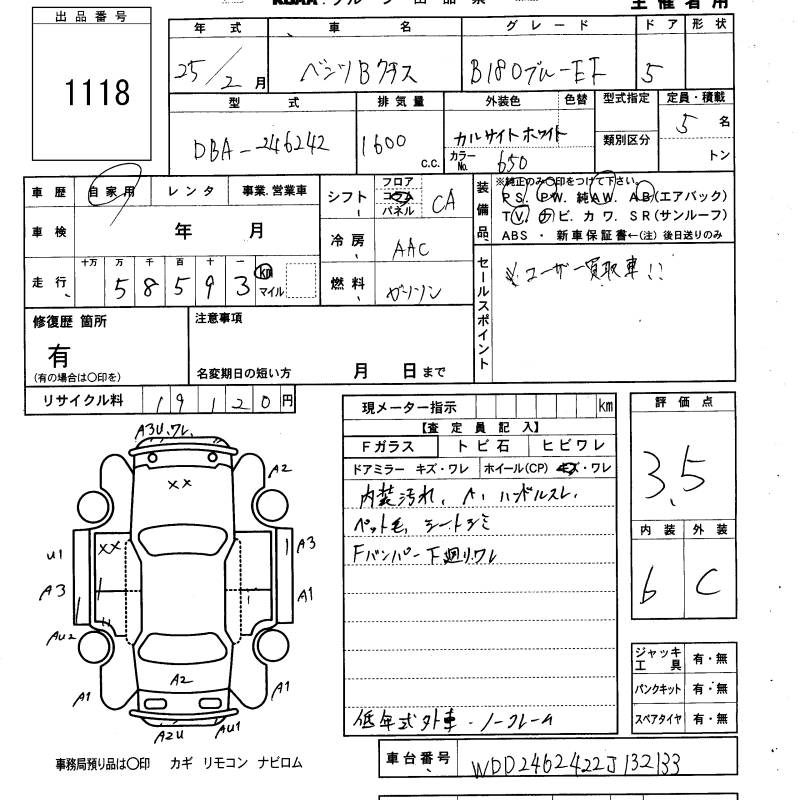 出品番号
1118
年式 車名 グレード ドア 形状
25/2月 ベンツBクラス B180ブルーEF 5
型式 排気量 外装色 色替 型式指定 定員・積載
DBA-246242 1600 c.c. カルサイトホワイト 類別区分 5名
カラーNo. 650 トン
車歴 自家用 レンタ 事業.営業車
車検 年 月
走行 十万 万 千 百 十 一 km
58593 マイル
シフト フロア コラム パネル CA
冷房 AAC
燃料 ガソリン
装備品
※純正のみ○印をつけて下さい。
PS. PW. 純AW. AB(エアバック)
TV. ナビ. カワ. SR(サンルーフ)
ABS ・ 新車保証書←(注)後日送りのみ
セールスポイント
※ユーザー買取車!!
修復歴 箇所
有
(有の場合は○印を)
注意事項
名変期日の短い方 月 日まで
リサイクル料 19120円
現メーター指示 km
【査定員記入】
Fガラス トビ石 ヒビワレ
ドアミラー キズ・ワレ ホイール(CP) キズ・ワレ
内装汚れ、A、ハンドルスレ
ペット毛、シートシミ
Fバンパー下廻りワレ
低年式外車・ノークレーム
評価点
3.5
内装 外装
b C
ジャッキ工具 有・無
パンクキット 有・無
スペアタイヤ 有・無
A3U.ワレ
XX
A2
U1
XX
A3
A3
A1
AU2
A1
A2
A1
A2U
AU1
事務局預り品は○印 カギ リモコン ナビロム
車台番号 WDD2462422J132133